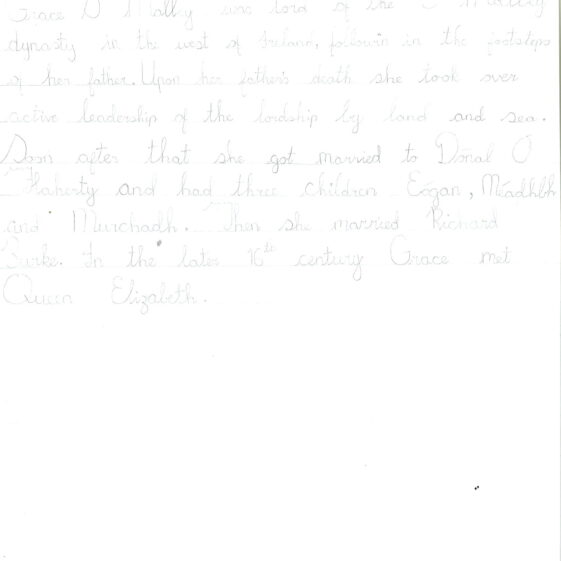 Grace O Malley was lord of the O Malley
dynasty in the west of Ireland, followin in the footsteps
of her father. Upon her father's death she took over
active leadership of the lordship by land and sea.
Soon after that she got married to Dónal Ó
Flaherty and had three children Eógan, Méadhbh
and Murchadh. Then she married Richard
Burke. In the later 16th century Grace met
Queen Elizabeth.